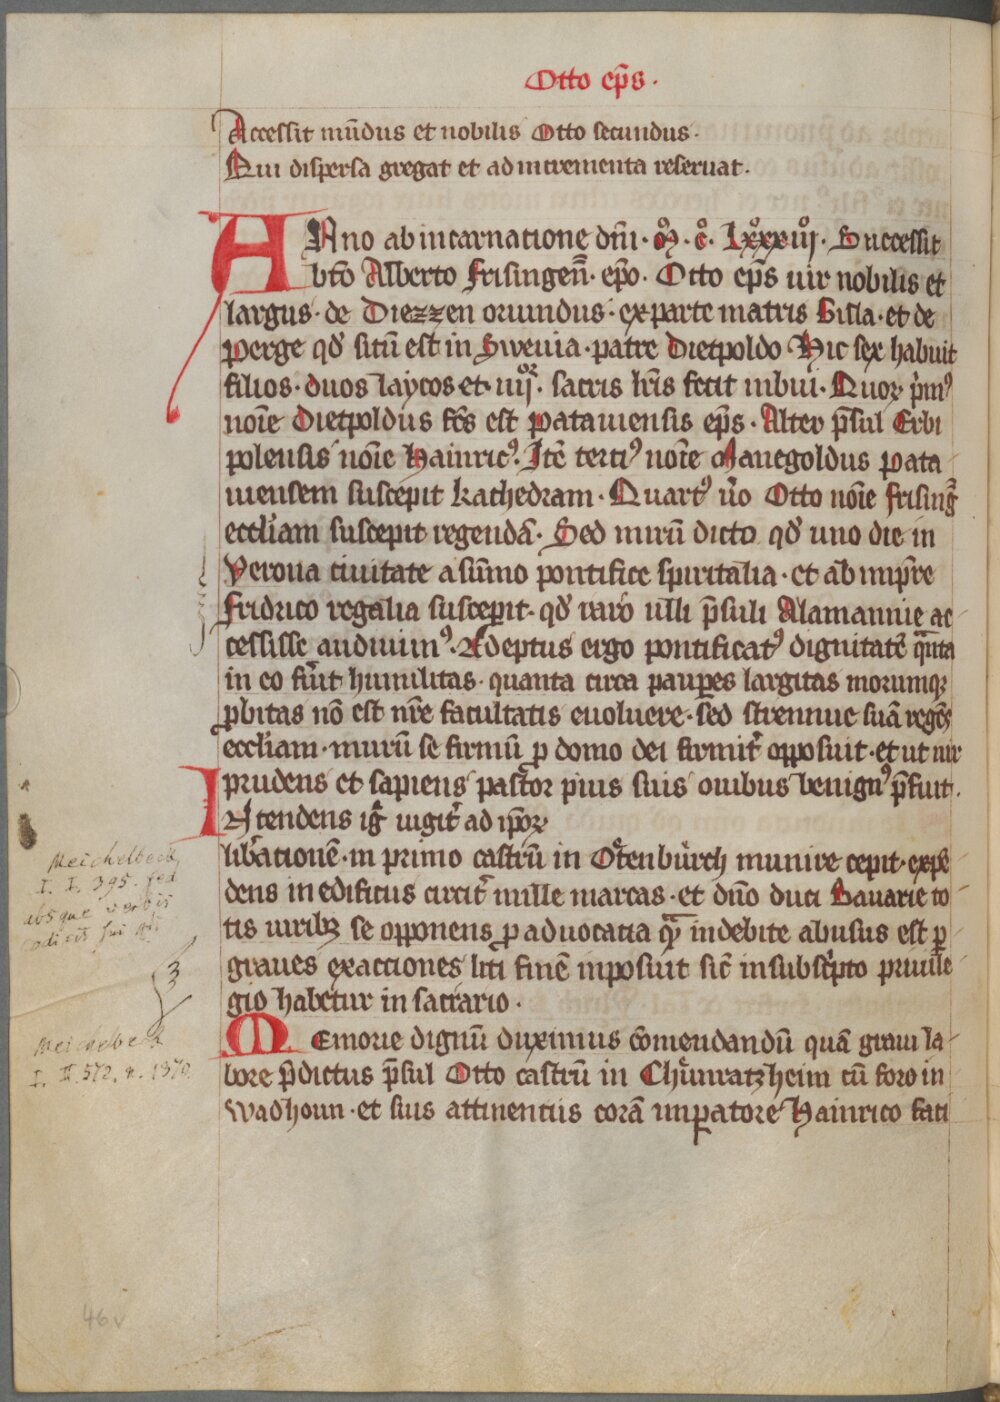 Otto ep̄s.
Accessit mūdus et nobilis Otto secundus.
Qui dispersa gregat et ad incrementa reseruat.
ANno ab incarnatione dn̄i. M̊. C̊. Lxxxiiij̊. Successit
bt̄o Alberto Frisingen̄. ep̄o. Otto ep̄s uir nobilis et
largus. de Diezzen oriundus. ex parte matris Gisla. et de
Perge qd̄ sitū est in Sweuia. patre Dietpoldo. Hic sex habuit
filios. duos laycos et. iiij̊ꝛ. sacris lr̄is fecit inbui. Quoꝝ p̄mꝰ
noīe Dietpoldus fc̄s est Patauiensis ep̄s. Alter p̄sul Erbi
polensis noīe Hainricꝰ. Itē tertiꝰ noīe Manegoldus Pata-
uiensem suscepit kathedram. Quartꝰ ũo Otto noīe Frising̃
eccl̄iam suscepit regendā. Sed mirū dictu qd̄ uno die in
Verona ciuitate a sūmo pontifice spiritalia. et ab imp̄re
Fridrico regalia suscepit. qd̄ raro ulli p̄suli Alamannie ac-
cessisse audiuimꝰ. Adeptus ergo pontificatꝰ dignitatē qͣnta
in eo fũit humilitas. quanta circa pauꝑes largitas morumqꝫ
ꝓbitas nō est nr̄e facultatis euoluere. sed strennue suā regēs
eccl̄iam. murū se firmū ꝓ domo dei firmit̾ opposuit. et ut uir
prudens et sapiens pastor pius suis ouibus benignꝰ p̄fuit.
INtendens ig̾ uigit̾ ad ip̄oꝝ
lib̾ationē. in primo castrū in Otenburch munire cepit. expē-
dens in edificiis circit̾ mille marcas. et dn̄o duci Bauarie to-
tis uiribꝫ se opponens ꝓ aduocatia qͣ indebite abusus est ꝑ
graues exactiones liti finē inposuit sic̄ in subsc̾pto priuile-
gio habetur in sacrario.
Memorie dignū duximus cōmendandū quā graui la-
bore p̄dictus p̄sul Otto castrū in Chůnratzheim cū foro in
Wadhoun. et suis attinentiis corā imperatore Hainrico faci
Meichelbeck,
I. I. 395. sed
absque verbis
codicis sui
3
Meichelbeck
I. II. 572. n. 1370.
46v